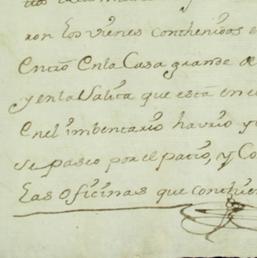 ron los vienes conthenidos e
Entró En la Casa grande de
y en la Salita que está en e
En el imbentario havrio y
se paseo por el patio, y Co
las oficinas que conthie